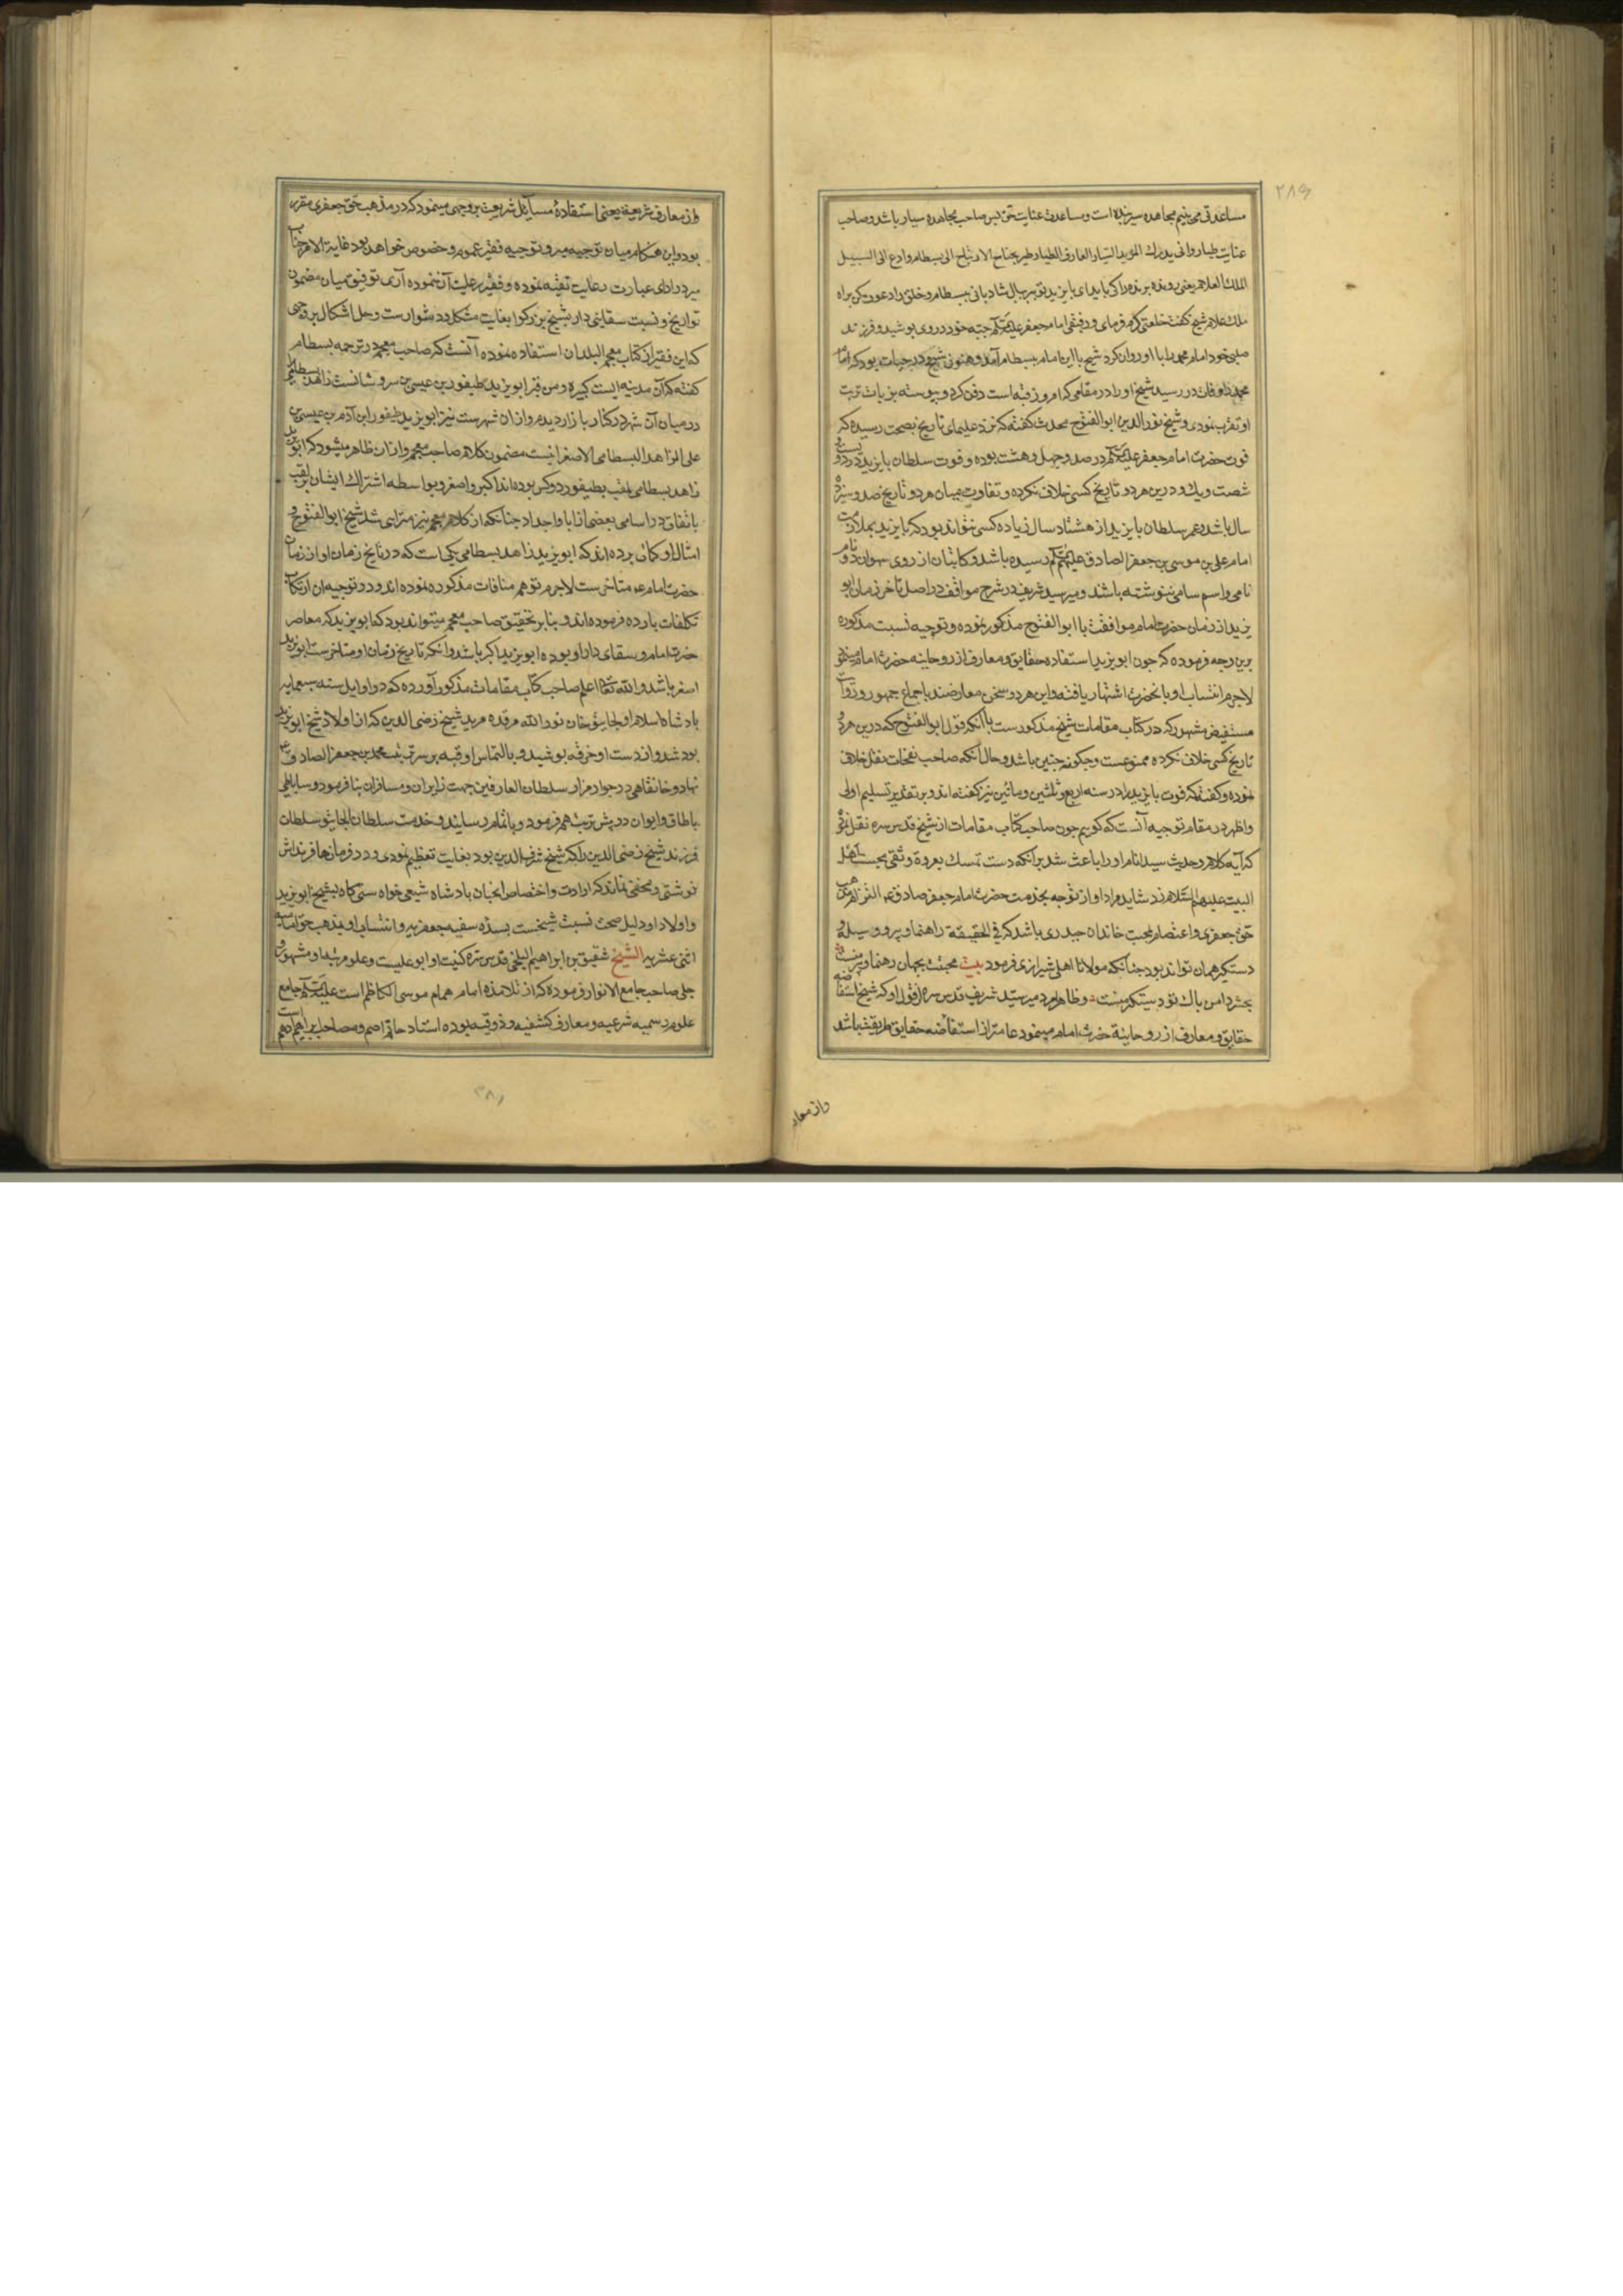 ۲۸۶
مساعدتی می‌بینیم مجاهده سیر بنده است و مساعدت عنایت حق پس صاحب مجاهده سیار باشد و صاحب
عنایت طیار وانی یدرك المؤبد السیار العارف الطیار طیر بجناح الارتیاح الی بسطام وادع الی السبیل
الملك العلام یعنی رونده برنده را کی یابد ای بایزید تو بر بال شادبانی ببسطام و خلق را دعوت کن براه
ملك علام شیخ گفت خلعتی کرم فرمای و رفیقی امام جعفر علیه‌السلم جبه خود در وی پوشید و فرزند
صلبی خود امام محمد را با او روان کرد شیخ با این امام ببسطام آمد و هنوز شیخ در حیات بود که امام
محمد را وفات در رسید شیخ او را در مقامی که امروز قبه است دفن کرد و پیوسته بزیارت تربت
او تقرب نمودی و شیخ نورالدین ابوالفتوح محدث گفته که نزد علمای تاریخ بصحت رسیده که
فوت حضرت امام جعفر علیه‌السلم در صد و چهل و هشت بوده و فوت سلطان بایزید در دویست و
شصت و یك و درین هر دو تاریخ کسی خلاف نکرده و تفاوت میان هر دو تاریخ صد و سیزده
سال باشد و عمر سلطان بایزید از هشتاد سال زیاده کسی نتواند بود که بایزید بملازمت
امام علی بن موسی بن جعفر الصادق علیهم‌السلم رسیده باشد و کاتبان از روی سهو ان دو نام
نامی و اسم سامی ننوشته باشند و میر سید شریف در شرح مواقف در اصل تأخر زمان ابو
یزید از زمان حضرت امام موافقت با ابوالفتوح مذکور نموده و توجیه نسبت مذکوره
برین وجه فرموده که چون ابو یزید استفاده حقایق و معارف از روحانیه حضرت امام مینمود
لاجرم انتساب او بانحضرت اشتهار یافته و این هر دو سخن معارضند باجماع جمهور و روایات
مستفیض مشهور که در کتاب مقامات شیخ مذکورست با آنکه قول ابوالفتوح که درین هر دو
تاریخ کسی خلاف نکرده ممنوعست و چگونه چنین باشد و حال آنکه صاحب نفحات نقل خلاف
نموده و گفته که فوت بایزید را در سنه اربع و ثلثین و مائتین نیز گفته‌اند و بر تقدیر تسلیم اولی
و اظهر در مقام توجیه آنست که گوییم چون صاحب کتاب مقامات از شیخ قدس سره نقل نموده
که آیه کلام و حدیث سید انام او را باعث شد بر آنکه دست تمسك بعروة وثقی محبت اهل
البیت علیهم السلام زند شاید مراد او از توجه بخدمت حضرت امام جعفر صادق ع التزام مذهب
حق جعفری و اعتصام بمحبت خاندان حیدری باشد که فی الحقیقة راهنما و پیر و وسیله و
دستگیر همان تواند بود چنانکه مولانا اهلی شیرازی فرمود بیت محبت بجهان رهنما و پیر منست
بحشر دامن پاك تو دستگیر منست و ظاهرا مراد میر سید شریف قدس سره از قول او که شیخ استفاضه
حقایق و معارف از روحانیة حضرت امام مینمود عامتر از استفاضه حقایق طریقت باشد
واز معار
واز معارف شریعة یعنی استفاده مسایل شریعت بر وجهی مینمود که در مذهب حق جعفری مقرر
بود و این هنگام میان توجیه میر و توجیه فقیر عموم و خصوص خواهد بود غایة الامر جناب
میر در ادای عبارت رعایت تقیه نموده و فقیر رعایت آن ننموده آری توفیق میان مضمون
تواریخ و نسبت سقایی دار بشیخ بزرگوار بغایت مشکل و دشوارست و حل اشکال بر وجهی
که این فقیر از کتاب معجم البلدان استفاده نموده آنست که صاحب معجم در ترجمه بسطام
گفته که آن مدینه ایست کبیره و من قبر ابو یزید طیفور بن عیسی بن سروشانست زاهد بسطامی
در میان آن شهر در کنار بازار دیدم و از ان شهرست نیز ابو یزید طیفور ابن آدم بن عیسی بن
علی الزاهد البسطامی الاصغر اینست مضمون کلام صاحب معجم و از ان ظاهر میشود که ابو یزید
زاهد بسطامی ملقب بطیفور دو کس بوده‌اند اکبر و اصغر و بواسطه اشتراك ایشان بلقب
باتفاق در اسامی بعضی از ابا و اجداد چنانکه از کلام معجم نیز مترایی شد شیخ ابوالفتوح و
امثال او گمان برده‌اند که ابو یزید زاهد بسطامی یکی است که در تاریخ زمان او از زمان
حضرت امام ع متأخرست لاجرم توهم منافات مذکوره نموده‌اند و در توجیه ان ارتکاب
تکلفات بارده فرموده‌اند و بنابر تحقیق صاحب معجم میتواند بود که ابو یزید که معاصر
حضرت امام و سقای دار او بوده ابو یزید اکبر باشد و انکه تاریخ زمان او متأخرست ابو یزید
اصغر باشد والله تعالی اعلم صاحب کتاب مقامات مذکور آورده که در اوایل سنه سبعمایه
پادشاه اسلام اولجایتو خان نور الله مرقده مرید شیخ رضی الدین که از اولاد شیخ ابو یزید
بود شد و از دست او خرقه پوشید و بالتماس او قبه بر سر تربت محمد بن جعفر الصادق ع
نهاد و خانقاهی در جوار مزار سلطان العارفین جهت زایران و مسافران بنا فرمود و ساباطی
با طاق و ایوان در پیش تربت هم فرمود و باتمام رسانید و خدمت سلطان الجایتو سلطان
فرزند شیخ رضی الدین را که شیخ شرف الدین بود بغایت تعظیم نمودی و در فرمانها فرزند اش
نوشتی و مخفی نماند که ارادت و اختصاص انخنان پادشاه شیعی خواه سنی کاه بشیخ ابو یزید
و اولاد او دلیل صحت نسبت شیخست بسده سنیه جعفریه و انتساب او بمذهب حق امامیه
اثنی عشریه الشیخ شقیق بن ابراهیم البلخی قدس سره کنیت او ابو علیست و علو مرتبه او مشهور و
جلی صاحب جامع الانوار فرموده که از تلامذه امام همام موسی الکاظم است علیه‌السلم جامع
علوم رسمیه شرعیه و معارف کشفیه و ذوقیه بوده استاد حاتم اصم و مصاحب ابراهیم ادهم است
۲۸۱